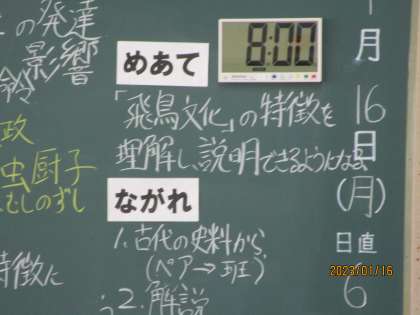 の発達
影響
政
虫厨子
むしのずし
特徴に
めあて
8:00
「飛鳥文化」の特徴を
理解し、説明できるようになる
ながれ
1.古代の史料から
(ペア→班)
2.解説
月
16
日
(月)
日直
6
2023/01/16